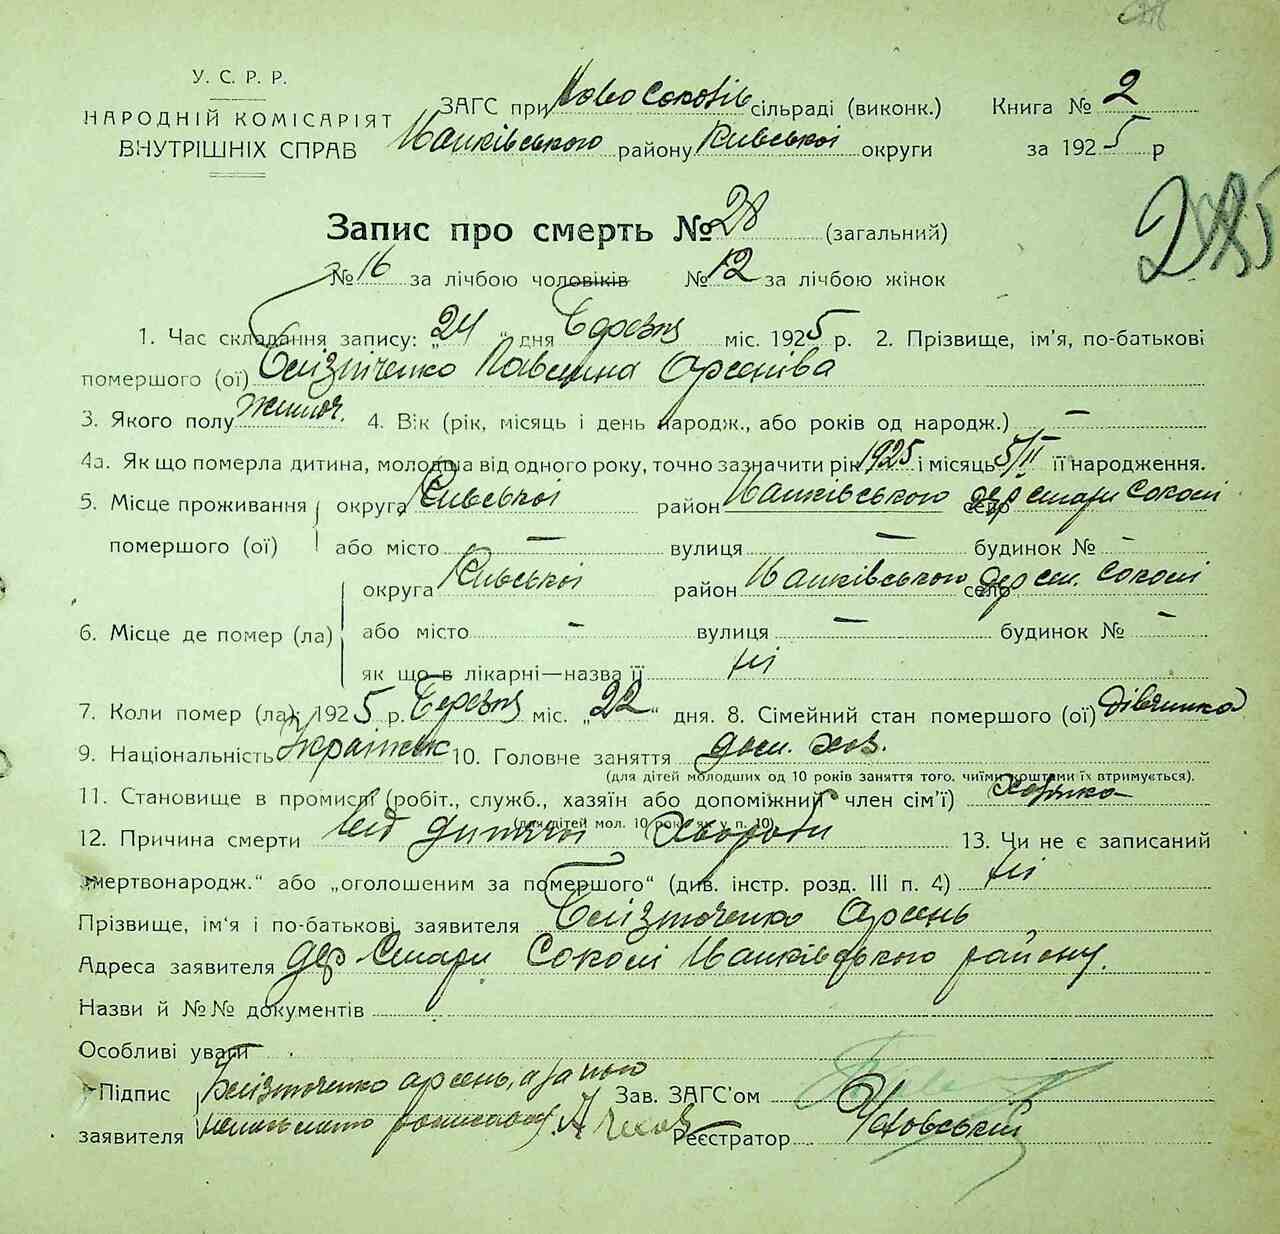 У. С. Р. Р.
НАРОДНІЙ КОМІСАРІЯТ
ВНУТРІШНІХ СПРАВ
ЗАГС при Ново Соколів сільраді (виконк.)
Іванківського району Київської округи
Книга № 2
за 1925 р
Запис про смерть № 28 (загальний)
285
№ 16 за лічбою чоловіків № 12 за лічбою жінок
1. Час складання запису: „24 “ дня Березня міс. 1925 р. 2. Прізвище, ім'я, по-батькові
помершого (ої) Павлина Арсенівa
3. Якого полу жіноч. 4. Вік (рік, місяць і день народж., або років од народж.) —
4а. Як що померла дитина, молодша від одного року, точно зазначити рік 1925 і місяць 5/II її народження.
5. Місце проживання округа Київської район Іванківського село дер Стари Соколі
помершого (ої) або місто — вулиця — будинок № —
округа Київської район Іванківського село дер ст. Соколі
6. Місце де помер (ла) або місто — вулиця — будинок № —
як що в лікарні—назва її ні
7. Коли помер (ла): 1925 р. Березня міс. „22“ дня. 8. Сімейний стан помершого (ої) дівчинка
9. Національність 10. Головне заняття дом. хоз.
(для дітей молодших од 10 років заняття того, чиїми коштами їх втримується).
11. Становище в промислі (робіт., служб., хазяїн або допоміжний член сім'ї)
(для дітей мол. 10 років як у п. 10)
12. Причина смерти від дитячої хвороби 13. Чи не є записаний
„мертвонародж.“ або „оголошеним за помершого“ (див. інстр. розд. III п. 4) ні
Прізвище, ім'я і по-батькові заявителя Арсень
Адреса заявителя дер Стари Соколі Іванківського району.
Назви й №№ документів
Особливі уваги
Підпис арсень, а за його Зав. ЗАГС'ом
заявителя Реєстратор